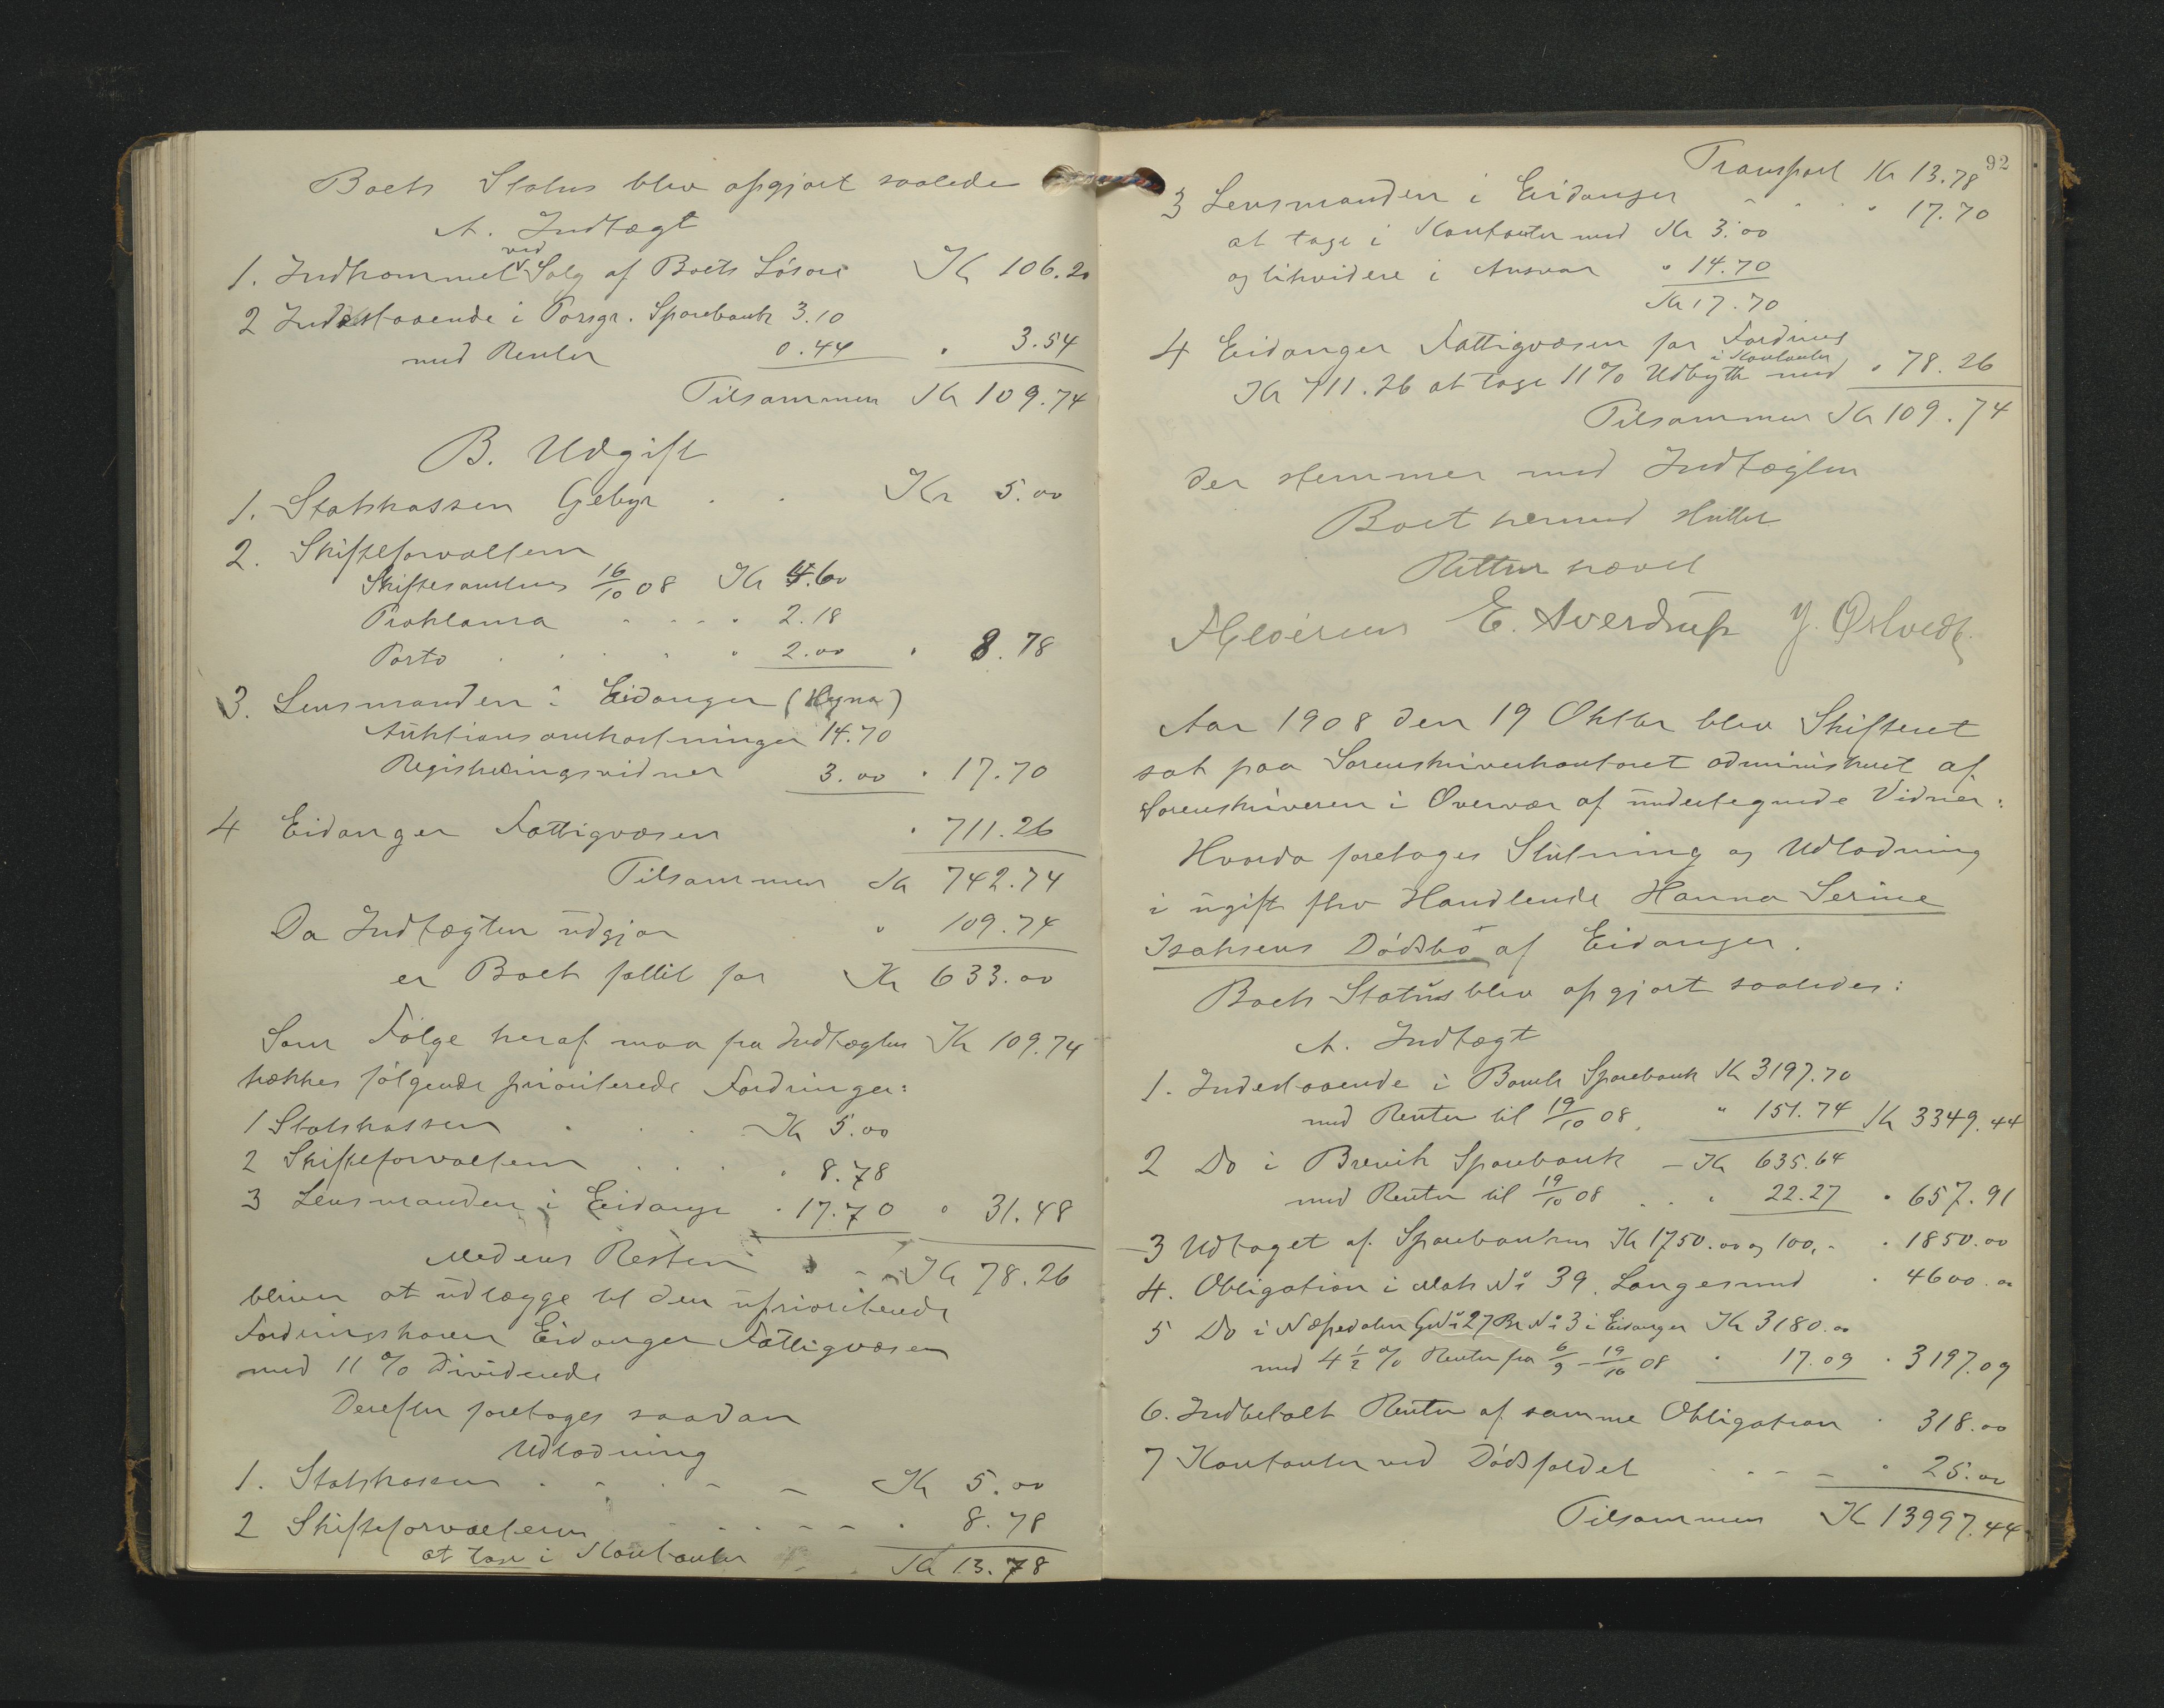 Boets Status blev opgjort saalede
A. Indtægt
1. Indkommet ved Salg af Boets Løsøre Kr 106.20
2 Indestaaende i Porsgr. Sparebank 3.10
med Renter 0.44 " 3.54
Tilsammen Kr 109.74
B. Udgift
1. Statskassen Gebyr . . Kr 5.00
2. Skifteforvalteren
Skiftesamling 16/10 08 Kr 4.60
Proklama . . . . " 2.18
Porto . . . . " 2.00 " 8.78
3. Lensmanden i Eidanger (Hegna)
Auktionsomkostninger 14.70
Registreringsvidner 3.00 " 17.70
4 Eidanger Fattigvæsen " 711.26
Tilsammen Kr 742.74
Da Indtægten udgjør " 109.74
er Boet fallit for Kr 633.00
Som Følge heraf maa fra Indtægten Kr 109.74
trækkes følgende prioriterede Fordringer:
1 Statskassen . . . Kr 5.00
2 Skifteforvalteren . . . . " 8.78
3 Lensmanden i Eidange " 17.70 " 31.48
Medens Resten " - - Kr 78.26
bliver at udlægge til den uprioriterede
Fordringshaver Eidanger Fattigvæsen
med 11 % Dividende
Derefter foretoges saadan
Udlodning
1. Statskassen . - . - - Kr 5.00
2 Skifteforvalteren - . . - - . 8.78
at tage i Kontanter - . Kr 13.78
92
Transport Kr 13.78
3 Lensmanden i Eidanger - . . " 17.70
at tage i Kontanter med Kr 3.00
og likvidere i Ansvar " 14.70
Kr 17.70
4 Eidanger Fattigvæsen for Fordring
i Kontanter
Kr 711.26 at tage 11 % Udbytte med " 78.26
Tilsammen Kr 109.74
der stemmer med Indtægten
Boet hermed sluttet
Retten hævet
E. Sverdrup J. Østvedt
Aar 1908 den 19 Oktbr blev Skifteret
sat paa Sorenskriverkontoret administreret af
Sorenskriveren i Overvær af undertegnede Vidner:
Hvorda foretoges Slutning og Udlodning
i ugift fhv Handlende Hanna Serine
Isaksens Dødsbo af Eidanger.
Boets Status blev opgjort saaledes:
A. Indtægt
1. Indestaaende i Bamle Sparebank Kr 3197.70
med Renter til 19/10 08. " 151.74 Kr 3349.44
2 Do i Brevik Sparebank - Kr 635.64
med Renter til 19/10 08 . . " 22.27 " 657.91
3 Udtaget af Sparebanken Kr 1750.00 og 100,- " 1850.00
4. Obligation i Matr No 39. Langesund " 4600.00
5 Do i Næpedalen G No 27 Br No 3 i Eidanger Kr 3180.00
med 4 1/2 % Renter fra 6/9 - 19/10 08 " 17.09 " 3197.09
6. Indbetalt Renter af samme Obligation " 318.00
7 Kontanter ved Dødsfaldet . - - - " 25.00
Tilsammen Kr 13997.44